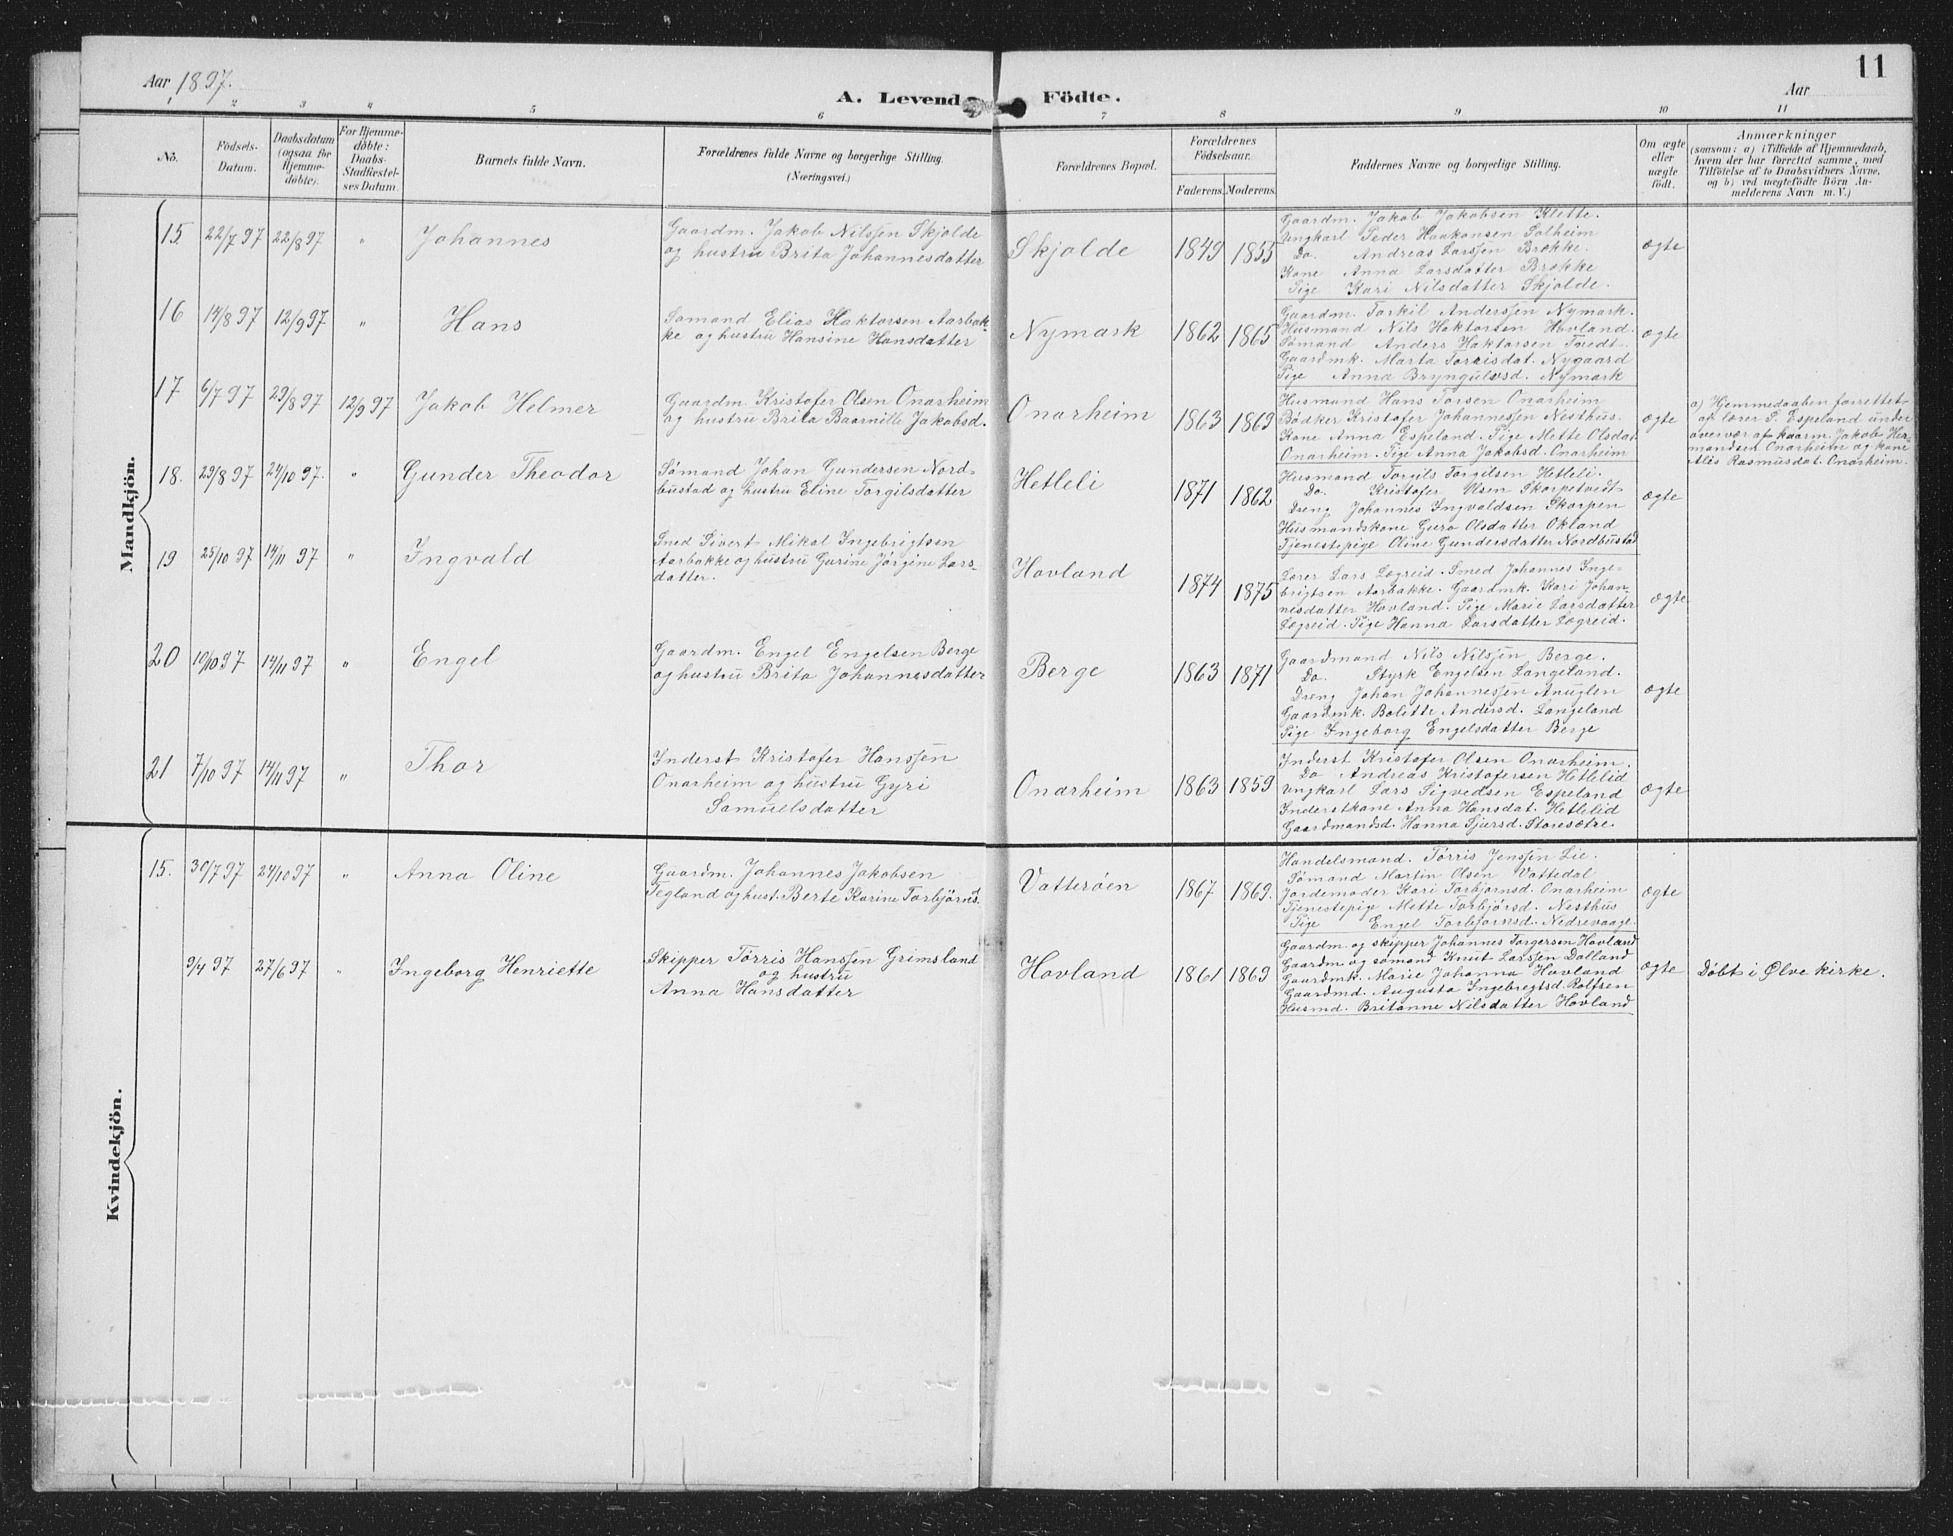 11
Aar 1897.
A. Levende Födte.
Aar
1 2 3 4 5 6 7 8 9 10 11
No.
Födsels-
Datum.
Daabsdatum
(ogsaa for
Hjemme-
döbte).
For Hjemme-
döbte:
Daabs-
Stadfæstel-
ses Datum.
Barnets fulde Navn.
Forældrenes fulde Navne og borgerlige Stilling.
(Næringsvei.)
Forældrenes Bopæl.
Forældrenes
Födselsaar.
Faderens. Moderens.
Faddernes Navne og borgerlige Stilling.
Om ægte
eller
uægte
födt.
Anmærkninger
(saasom: a) i Tilfælde af Hjemmedaab,
hvem der har forrettet samme, med
Tilföielse af to Daabsvidners Navne,
og b) ved uægtefödte Börn An-
melderens Navn m. V.)
Mandkjön.
15. 22/7 97 22/8 97 " Johannes
Gaardm. Jakob Nilssen Skjolde
og hustru Brita Johannesdatter
Skjolde 1849 1855
Gaardm. Jakob Jakobsen Klette.
Ungkarl Peder Haakonsen Solheim
Do. Andreas Larssen Brekke.
Kone Anna Larsdatter Brekke
Pige Kari Nilsdatter Skjolde.
ægte
16 14/8 97 12/9 97 " Hans
Sømand Elias Haktorsen Aarbak-
ke og hustru Hansine Hansdatter
Nymark 1862 1865
Gaardm. Torkil Anderssen Nymark.
Husmand Nils Haktorsen Hovland.
Sømand Anders Haktorsen Tvedt.
Gaardmk. Marta Torrisdat. Nygaard
Pige Anna Bryngulvsd. Nymark
ægte
17 6/7 97 29/8 97 12/9 97 Jakob Helmer
Gaardm. Kristofer Olsen Onarheim
og hustru Brita Baarnille Jakobsd.
Onarheim 1863 1869
Husmand Hans Torsen Onarheim
Bødker Kristofer Johannessen Nesthus.
Kone Anna Espeland. Pige Mette Olsdat.
Onarheim. Pige Anna Jakobsd. Onarheim
ægte
a) Hjemmedaaben forrettet
af lærer S. Espeland under
overvær af kaarm. Jakob Her-
mandsen Onarheim og kone
Alis Rasmusdat. Onarheim.
18. 29/8 97 24/10 97. " Gunder Theodor
Sømand Johan Gundersen Nord-
bustad og hustru Eline Torgilsdatter
Hetleli 1871 1862
Husmand Torgils Torgilsen Hetleli.
Do. Kristofer Olsen Skorpetvedt
Dreng Johannes Ingvaldsen Skorpen
Husmandskone Guro Olsdatter Økland
Tjenestepige Oline Gundersdatter Nordbustad
ægte
19 25/10 97 14/11 97 " Ingvald
Smed Sivert Mikal Ingebrigtsen
Aarbakke og hustru Gurine Jørgine Lars-
datter.
Hovland 1874 1875
Lærer Lars Lægreid. Smed Johannes Inge-
brigtsen Aarbakke. Gaardmk. Kari Johan-
nesdatter Hovland. Pige Marie Larsdatter
Lægreid. Pige Hanna Larsdatter Lægreid.
ægte
20 19/10 97 14/11 97 " Engel
Gaardm. Engel Engelsen Berge
og hustru Brita Johannesdatter
Berge 1863 1871
Gaardmand Nils Nilssen Berge.
Do. Styrk Engelsen Langeland.
Dreng Johan Johannessen Anuglen
Gaardmk. Bolitte Andersd. Langeland
Pige Ingeborg Engelsdatter Berge
ægte
21 7/10 97 14/11 97 " Thor
Inderst Kristofer Hanssen
Onarheim og hustru Gyri
Samuelsdatter
Onarheim 1863 1859
Inderst Kristofer Olsen Onarheim.
Do Andreas Kristofersen Hetlelid
Ungkarl Lars Sigvedsen Espeland
Inderstkone Anna Hansdat. Hetlelid
Gaardmandsd. Hanna Sjursd. Storesætre.
ægte
Kvindekjön.
15. 30/7 97 24/10 97 " Anna Oline
Gaardm. Johannes Jakobsen
Tegland og hust. Berte Karine Torbjørnsd.
Vatterøen 1867 1869.
Handelsmand. Tørris Jenssen Lie.
Sømand Martin Olsen Vattedal
Jordemoder Kari Torbjørnsd. Onarheim
Tjenestepige Mette Torbjørsd. Nesthus
Pige Engel Torbjørnsd. Nedrevaage.
ægte
9/4 97 27/6 97 " Ingeborg Henriette
Skipper Tørris Hanssen Grimsland
og hustru
Anna Hansdatter
Hovland 1861 1869
Gaardm. og skipper Johannes Torgersen Hovland
Gaardm. og sømand Knut Larssen Dalland
Gaardmk. Marie Johanna Hovland
Gaardmd. Augusta Ingebregtsd. Rolfsen
Husmd. Britanne Nilsdatter Hovland
ægte
Døbt i Ølve kirke.